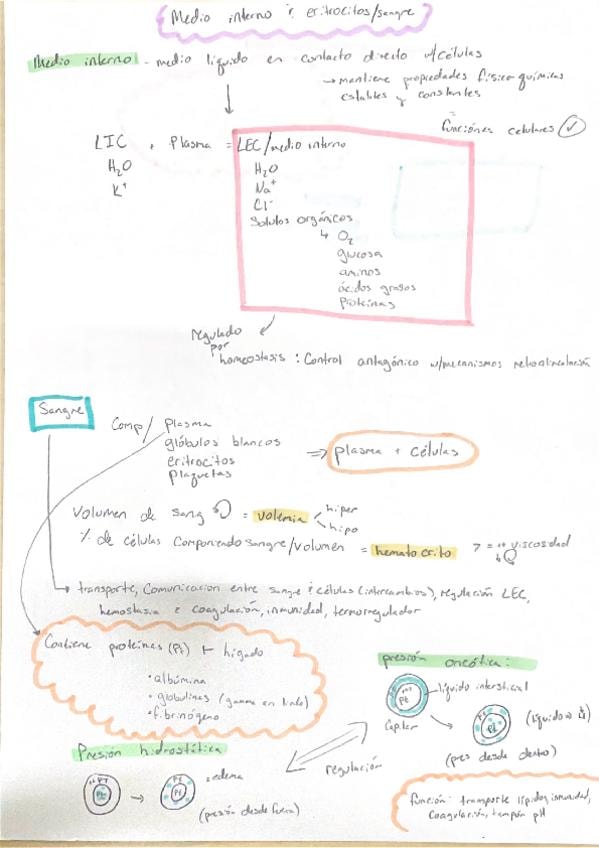 Medio interno & eritrocitos/sangre
Medio interno - medio líquido en contacto directo w/células
→ mantiene propiedades físico químicas
estables y constantes
=
funciones celulares ✓
LIC + Plasma = LEC/medio interno
H₂O
K⁺
H₂O
Na⁺
Cl⁻
Solutos orgánicos
↳ O₂
glucosa
aminos
ácidos grasos
Proteínas
regulado
por
homeostasis : Control antagónico w/mecanismos retroalimentación
Sangre
Comp/ plasma
glóbulos blancos
eritrocitos
plaquetas
⇒ plasma + células
Volumen de sang = volemia < hiper
hipo
% de células componiendo sangre/volumen = hematocrito 7 = ++ viscosidad
↳ Q
→ transporte, Comunicacion entre sangre & células (intercambios), regulación LEC,
hemostasia & coagulación, inmunidad, termorregulador
Contiene proteínas (Pt) ⊢ hígado
• albúmina
• globulinas (gamma en linfo)
• fibrinógeno
presión oncótica:
líquido intersticial
Pt
Capilar
Pt
(pres desde dentro)
Presión hidrostática
regulación
Pt
→
Pt
edema
(presión desde fuera)
función: transporte lípidos, inmunidad,
Coagulación, tampón pH